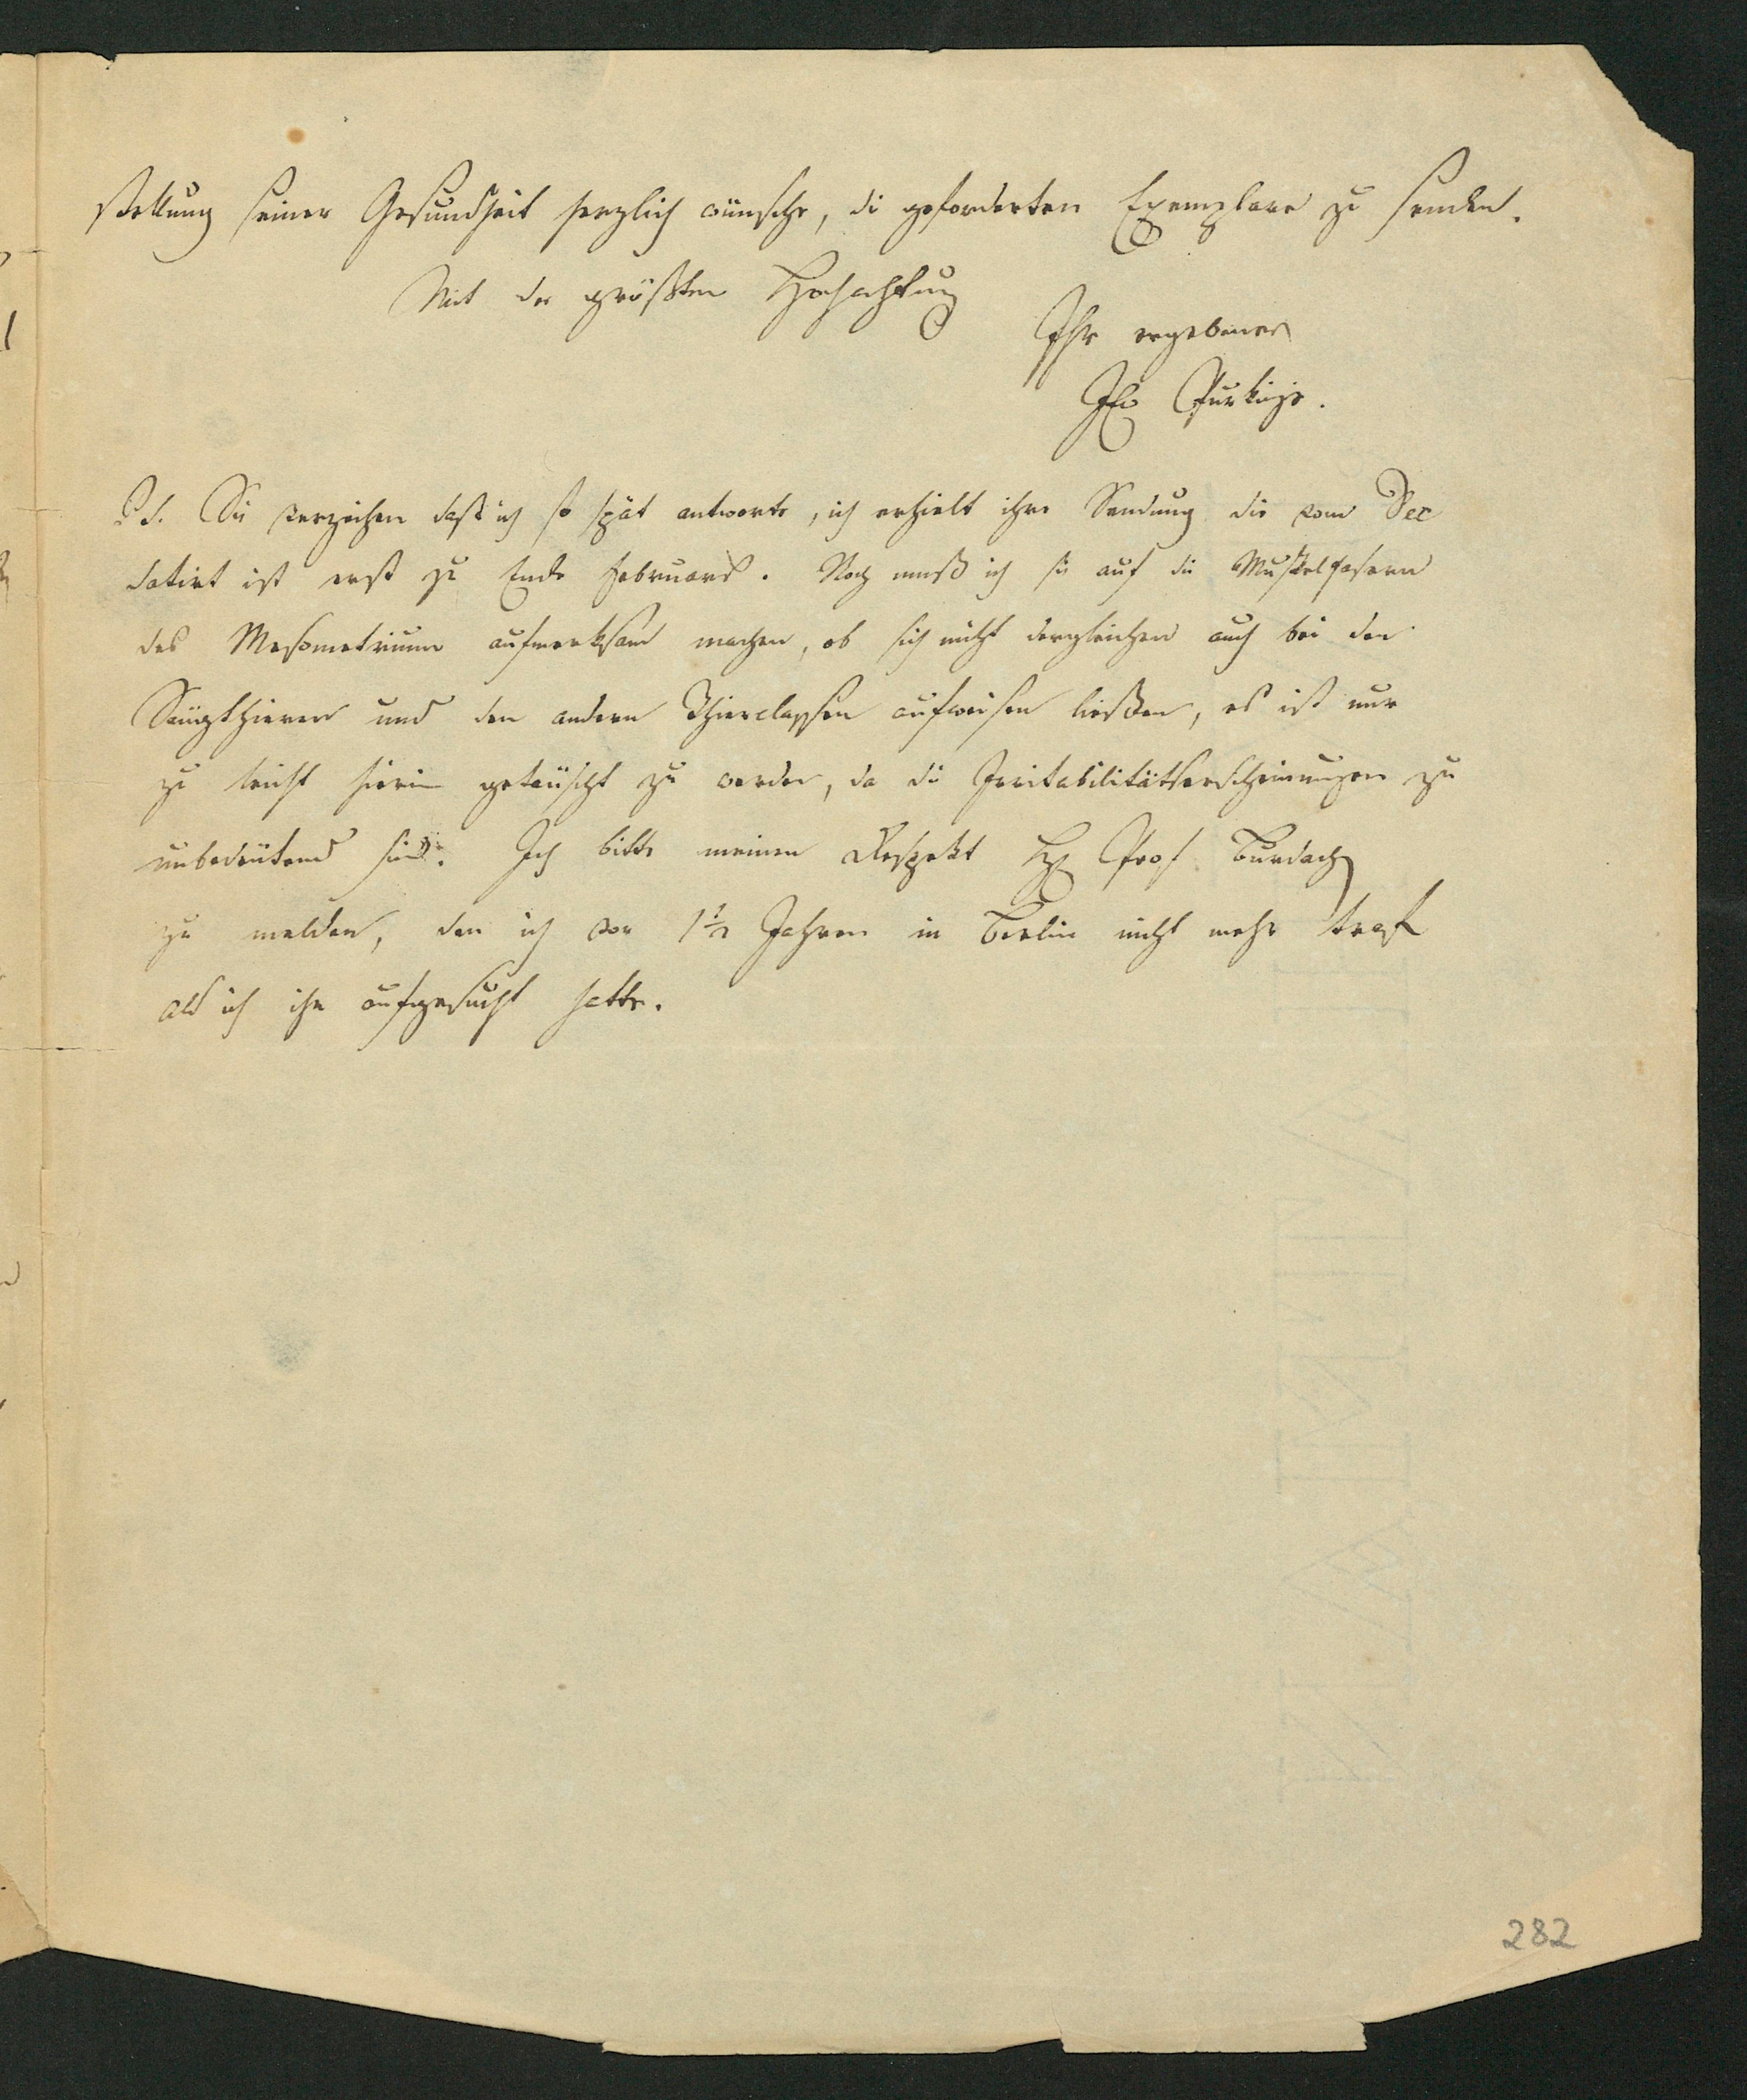 stellung seiner Gesundheit herzlich wünsche, di geforderten Exemplare zu senden.
Mit der größten Hochachtung
Ihr ergebener
Purkinje.
PS. Sie verzeihen daß ich so spät antworte, ich erhielt ihre Sendung die vom Dec
datirt ist erst zu Ende Februars. Noch muß ich sie auf die Muskelfasern
des Mesometriums aufmerksam machen, ob sich nicht dergleichen auch bei den
Säugthieren und den andern Thierclassen aufweisen ließen, es ist nur
zu leicht hierin getäuscht zu werden, da die Irritabilitätserscheinungen zu
unbedeutend sind. Ich bitte meinen Respekt H Prof Burdach
zu melden, den ich vor 1½ Jahren in Berlin nicht mehr traf
als ich ihn aufgesucht hatte.
282